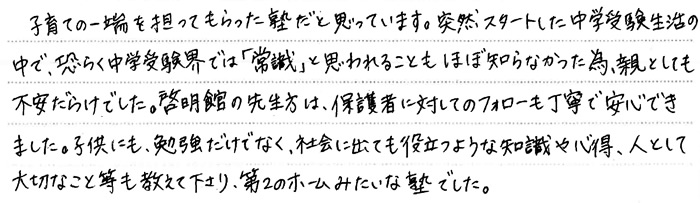 子育ての一端を担ってもらった塾だと思っています。突然、スタートした中学受験生活の
中で、恐らく中学受験界では「常識」と思われることもほぼ知らなかった為、親としても
不安だらけでした。啓明館の先生方は、保護者に対してのフォローも丁寧で安心でき
ました。子供にも、勉強だけでなく、社会に出ても役立つような知識や心得、人として
大切なこと等も教えて下さり、第2のホームみたいな塾でした。